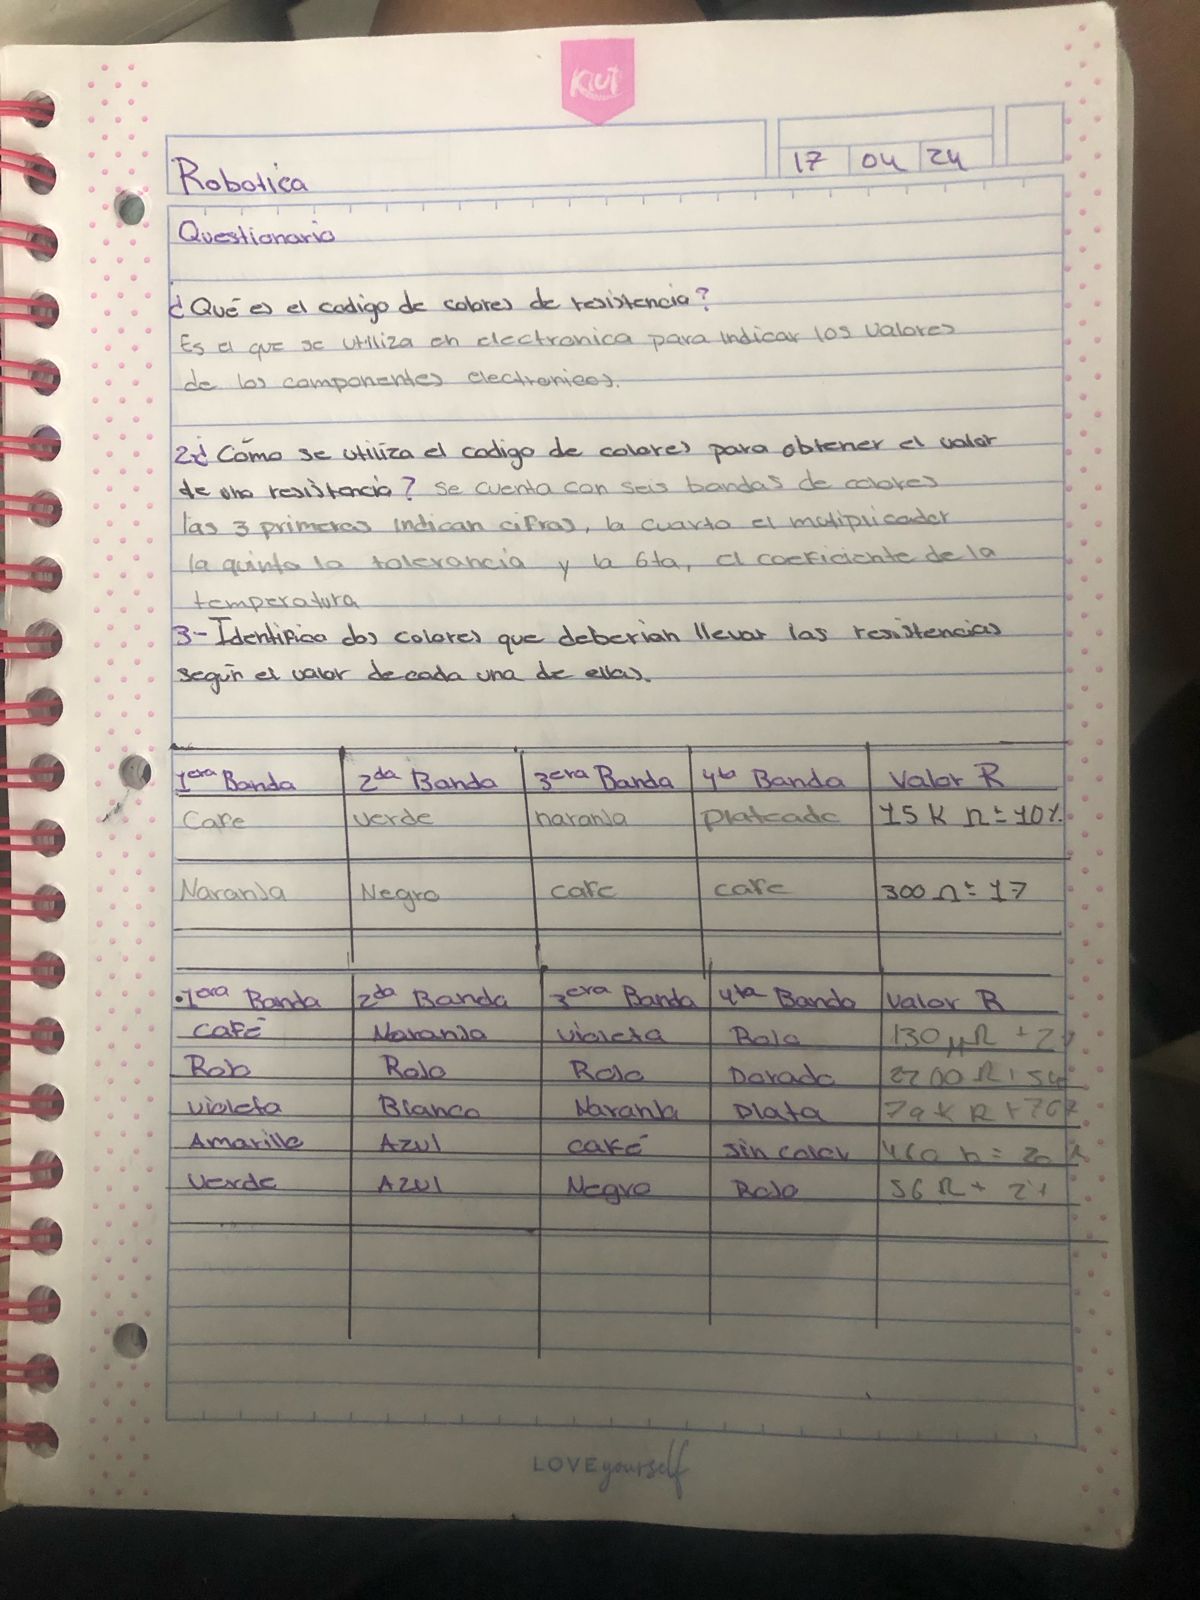 Kiut
17 04 24
Robotica
Questionario
¿Qué es el codigo de colores de resistencia?
Es el que se utiliza en electronica para indicar los valores
de los componentes electronicos.
2¿Cómo se utiliza el codigo de colores para obtener el valor
de una resistencia? se cuenta con seis bandas de colores
las 3 primeras indican cifras, la cuarta el mutiplicador
la quinta la tolerancia y la 6ta, el coeficiente de la
temperatura
3-Identifica dos colores que deberian llevar las resistencias
según el valor de cada una de ellas.
1era Banda 2da Banda 3era Banda 4ta Banda Valor R
Cafe verde naranja plateado 15 K Ω = 10%
Naranja Negro cafe cafe 300 Ω = 17
1era Banda 2da Banda 3era Banda 4ta Banda Valor R
café Naranja violeta Rojo 130
Rojo Rojo Rojo Dorado 2200 Ω
violeta Blanco Naranja Plata
Amarillo Azul café sin color
verde Azul Negro Rojo 56 Ω +
LOVE yourself